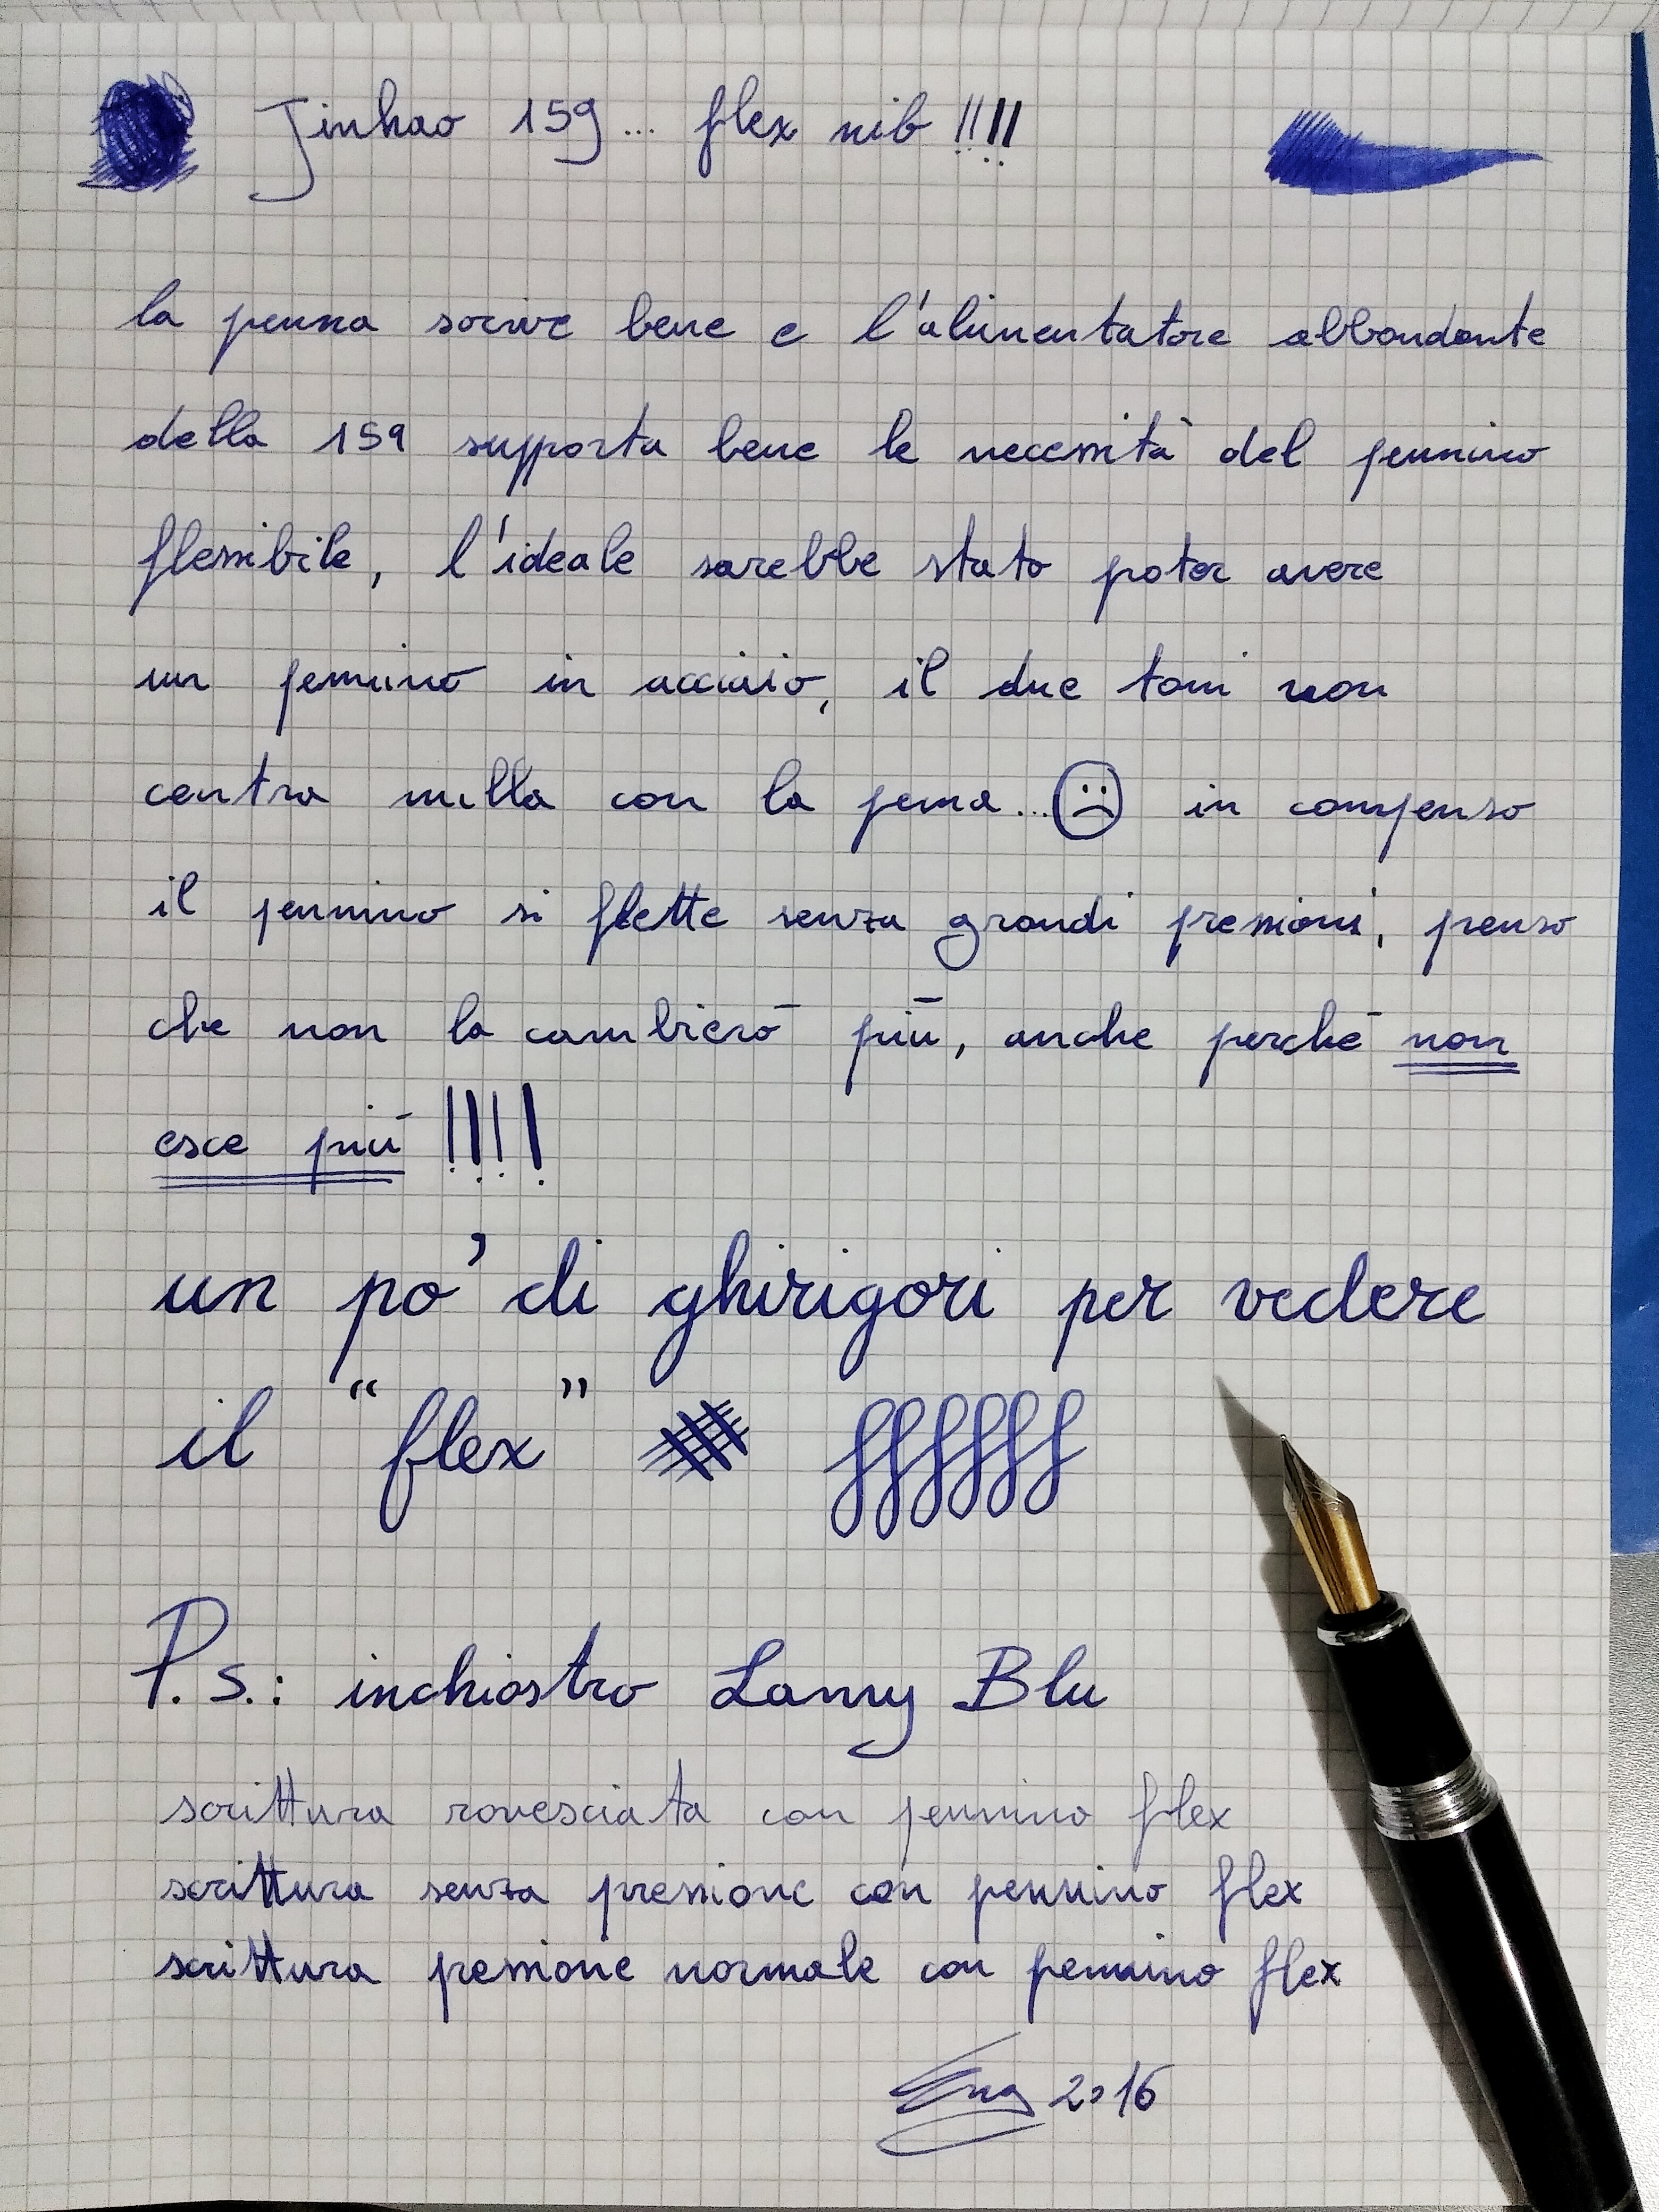 Jinhao 159... flex nib !!!!
la penna scrive bene e l'alimentatore abbondante
della 159 supporta bene le necessità del pennino
flessibile, l'ideale sarebbe stato poter avere
un pennino in acciaio, il due toni non
centra nulla con la penna... in compenso
il pennino si flette senza grandi pressioni, penso
che non la cambierò più, anche perché non
esce più !!!!
un po' di ghirigori per vedere
il "flex" ffffff
P.S.: inchiostro Lamy Blu
scrittura rovesciata con pennino flex
scrittura senza pressione con pennino flex
scrittura pressione normale con pennino flex
2016